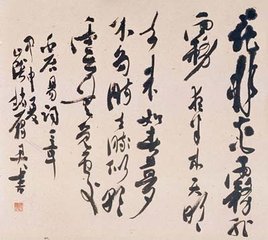 花非花霧非
霧夜半來天明
去來如春夢
不多時去似朝
雲無覓處
白居易詞一章
甲申
書